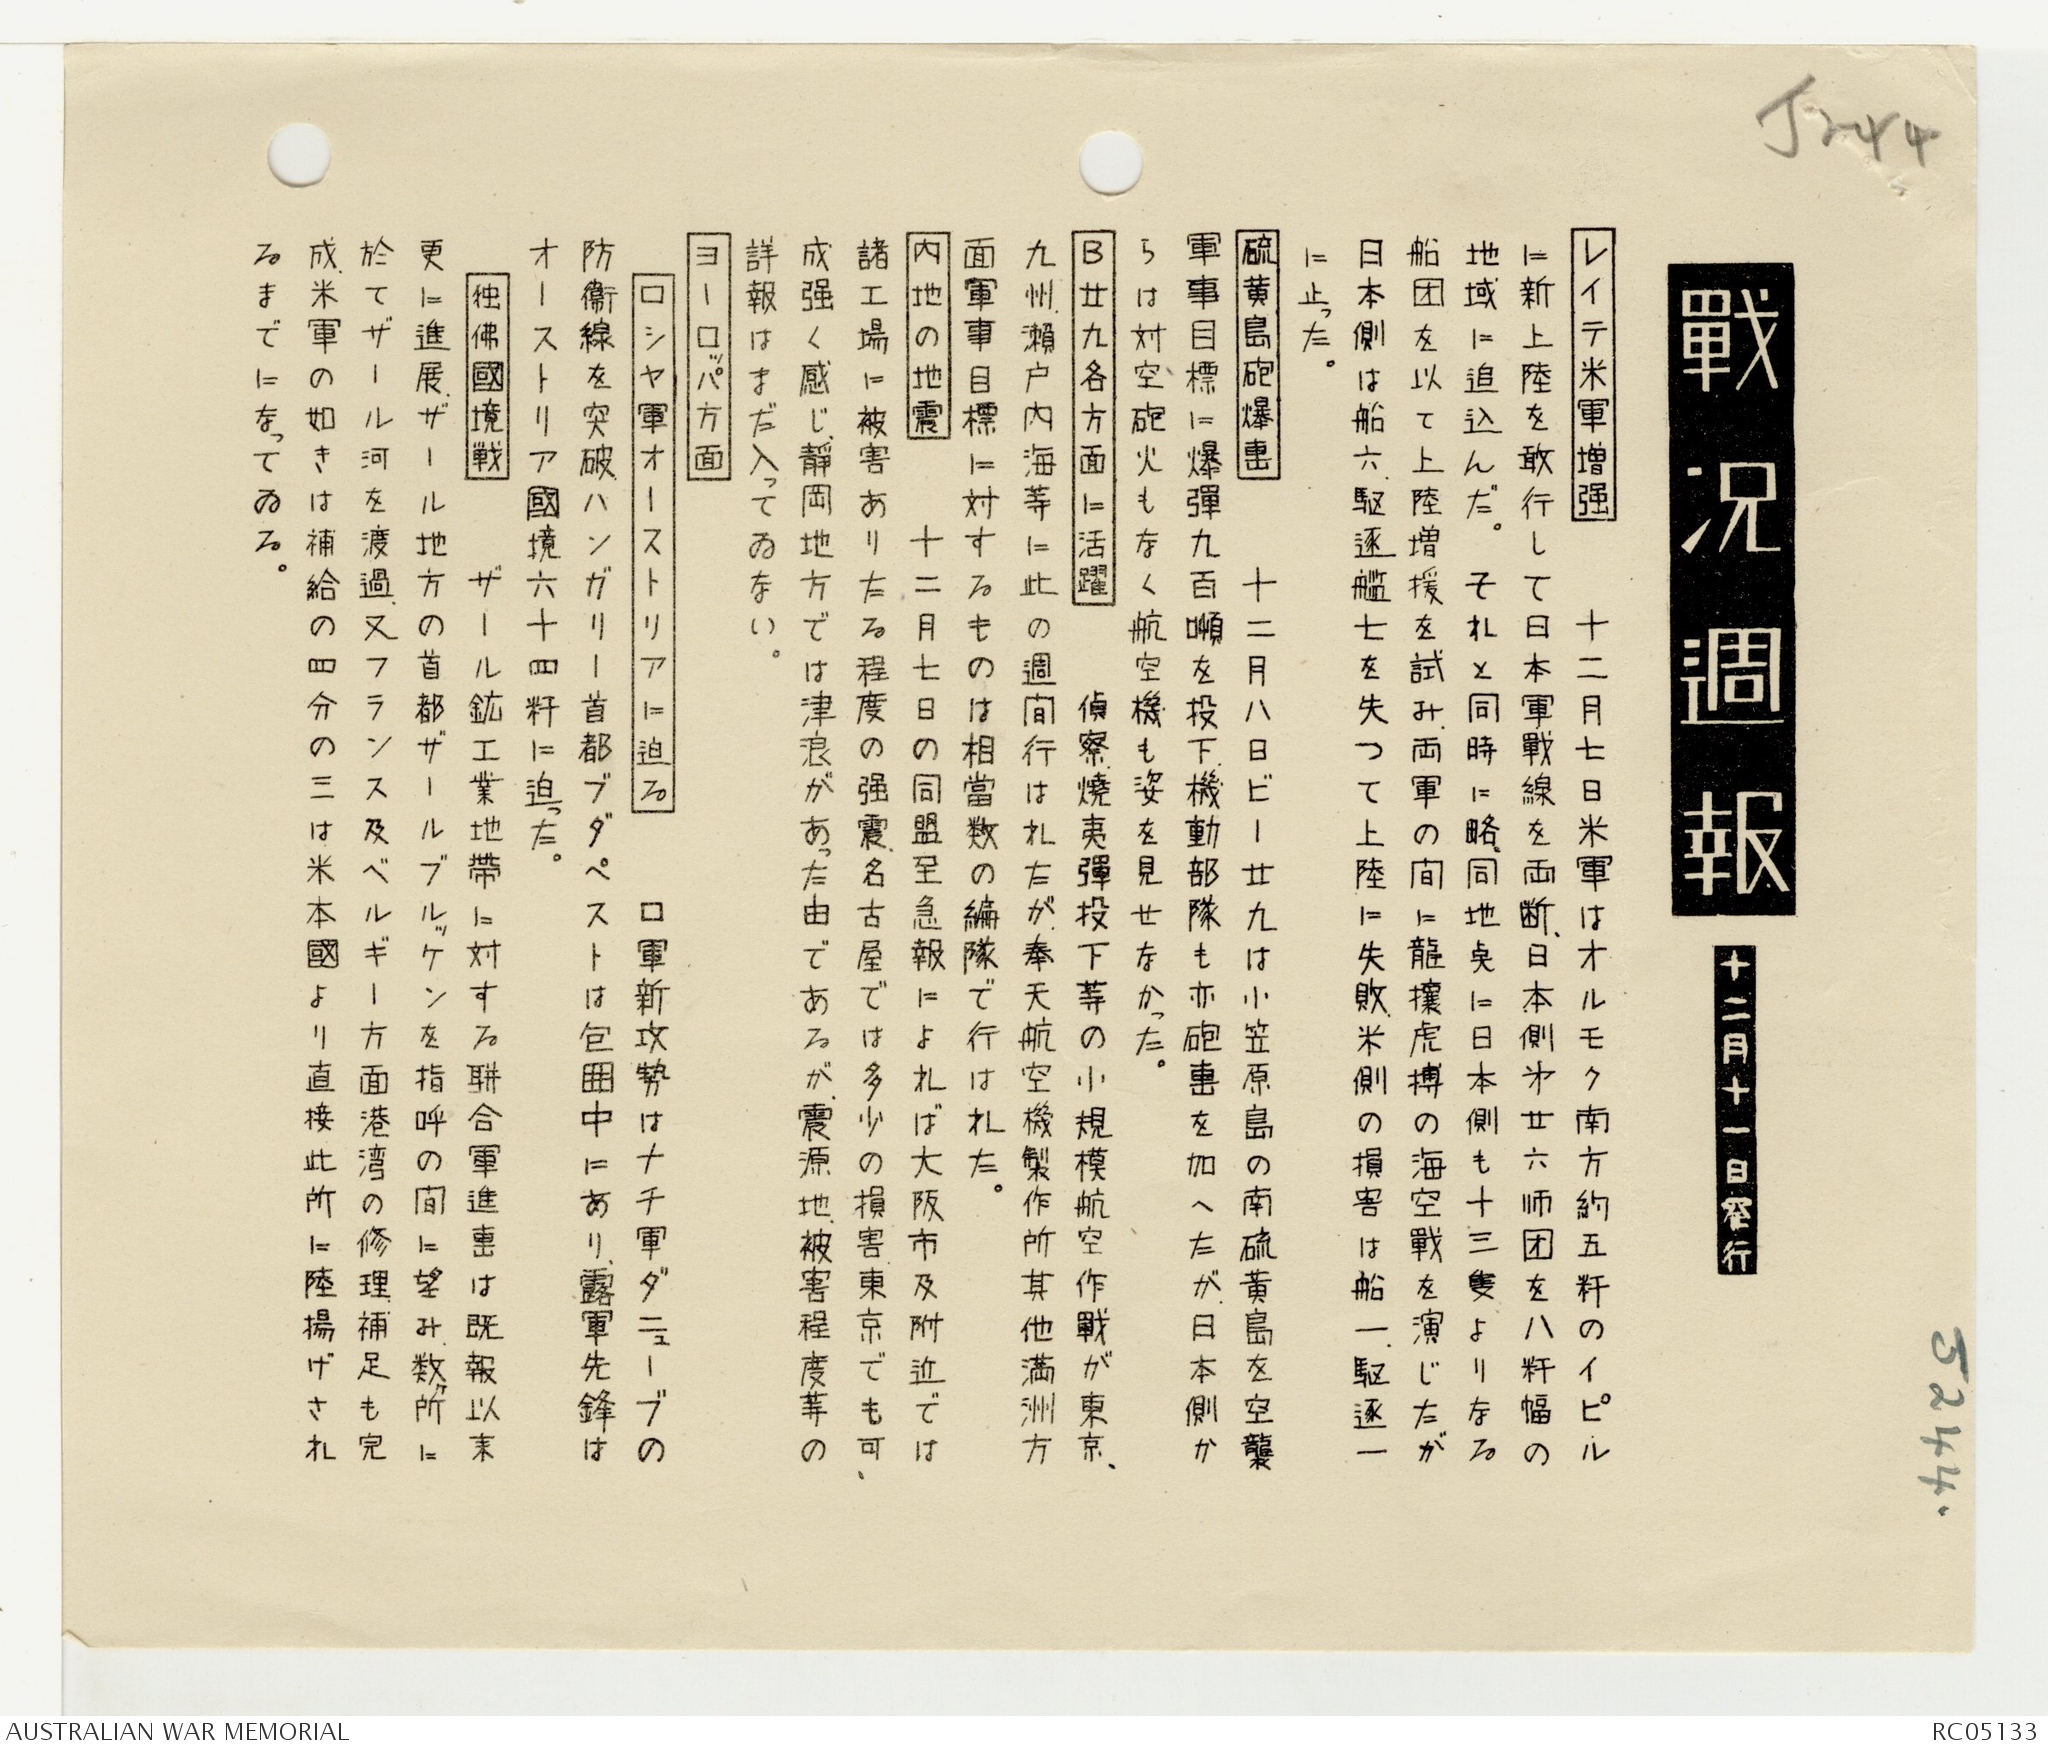 J244
戰況週報
十二月十一日發行
J244.
レイテ米軍増强　十二月七日米軍はオルモク南方約五粁のイピル
に新上陸を敢行して日本軍戰線を両断、日本側才廿六师団を八粁幅の
地域に追込んだ。それと同時に略、同地点に日本側も十三隻よりなる
船団を以て上陸増援を試み、両軍の間に龍攘虎搏の海空戰を演じたが
日本側は船六、駆逐艦七を失つて上陸に失敗、米側の損害は船一、駆逐一
に止った。
硫黄島砲爆擊　十二月八日ビー廿九は小笠原島の南硫黄島を空襲
軍事目標に爆彈九百噸を投下、機動部隊も亦砲擊を加へたが、日本側か
らは対空砲火もなく航空機も姿を見せなかった。
B廿九各方面に活躍　偵察、燒夷彈投下等の小規模航空作戰が東京、
九州、瀨戸内海等に此の週間行はれたが、奉天航空機製作所其他満洲方
面軍事目標に対するものは相當数の編隊で行はれた。
内地の地震　十二月七日の同盟至急報によれば大阪市及附近では
諸工場に被害ありたる程度の强震、名古屋では多少の損害、東京でも可、
成强く感じ、靜岡地方では津浪があった由であるが、震源地、被害程度等の
詳報はまだ入ってゐない。
ヨーロッパ方面
ロシヤ軍オーストリアに迫る　ロ軍新攻勢はナチ軍ダニューブの
防衞線を突破、ハンガリー首都ブダペストは包囲中にあり、露軍先鋒は
オーストリア國境六十四粁に迫った。
独佛國境戦　ザール鉱工業地帶に対する聯合軍進擊は既報以来
更に進展、ザール地方の首都ザールブルッケンを指呼の間に望み、数ヶ所に
於てザール河を渡過、又フランス及ベルギー方面港湾の修理、補足も完
成、米軍の如きは補給の四分の三は米本國より直接此所に陸揚げされ
るまでになってゐる。
AUSTRALIAN WAR MEMORIAL
RC05133